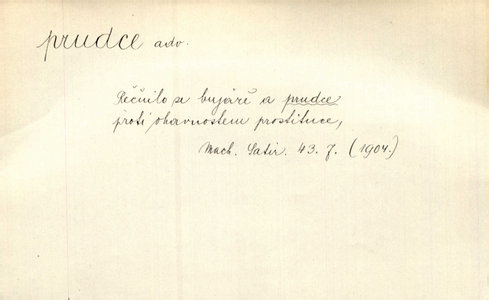 prudce adv.
Řečnilo se bujáře a prudce
proti ohavnostem prostituce,
Mach. Satir. 43. 7. (1904.)